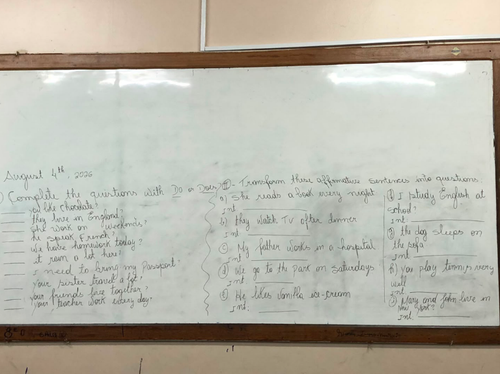 August 4th, 2026
) Complete the questions with Do or Does?
___ you like chocolate?
___ they live in England?
___ she work on weekends?
___ he speak French?
___ we have homework today?
___ it rain a lot here?
___ I need to bring my passport?
___ your sister travel a lot?
___ your friends live together?
___ your teacher work every day?
II - Transform these affirmative sentences into questions.
a) She reads a book every night
Int. ___
b) they watch TV after dinner
Int. ___
c) My father works in a hospital
Int. ___
d) We go to the park on Saturdays
Int. ___
e) He likes vanilla ice-cream
Int. ___
f) I study English at
school?
Int. ___
g) the dog sleeps on
the sofa
Int. ___
h) You play tennis very
well
Int. ___
i) Mary and John live in
New York?
Int. ___